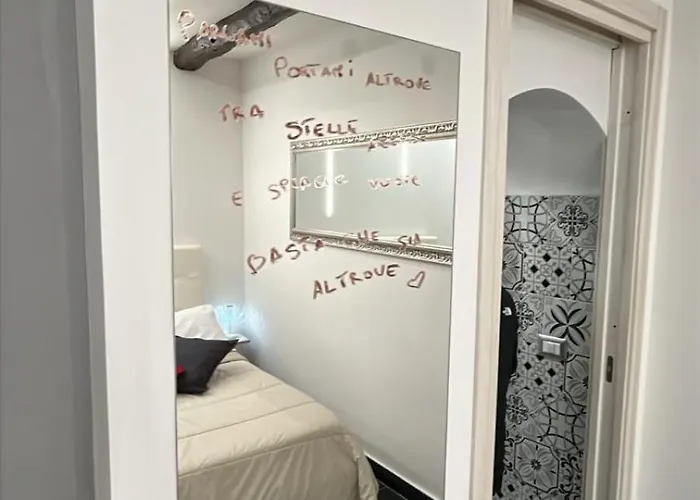 PARLAMI
PORTAMI ALTROVE
TRA
STELLE
E SPIAGGE VUOTE
BASTA CHE SIA
ALTROVE